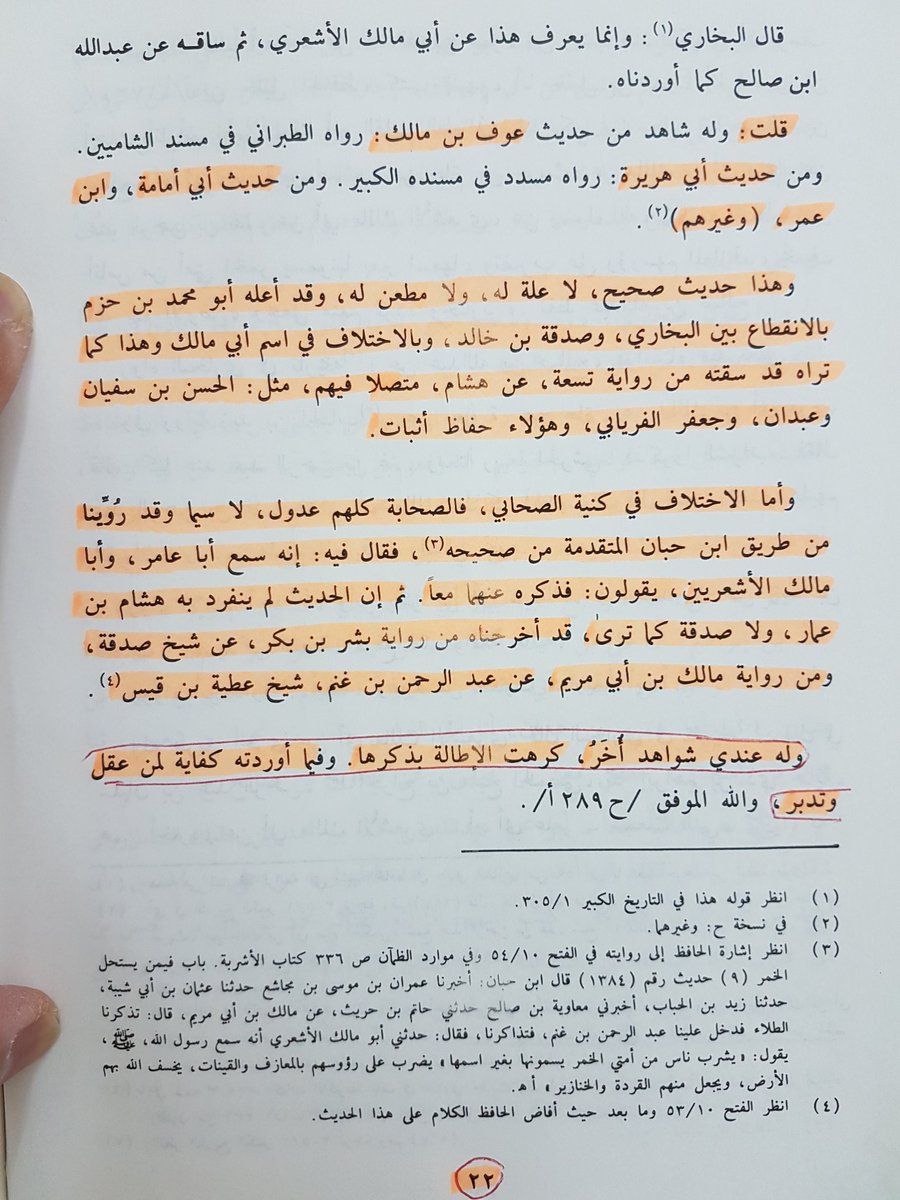 قال البخاري(١) : وإنما يعرف هذا عن أبي مالك الأشعري، ثم ساقه عن عبدالله
ابن صالح كما أوردناه.
قلت: وله شاهد من حديث عوف بن مالك: رواه الطبراني في مسند الشاميين.
ومن حديث أبي هريرة: رواه مسدد في مسنده الكبير. ومن حديث أبي أمامة، وابن
عمر، (وغيرهم)(٢).
وهذا حديث صحيح، لا علة له، ولا مطعن له، وقد أعله أبو محمد بن حزم
بالانقطاع بين البخاري، وصدقة بن خالد، وبالاختلاف في اسم أبي مالك وهذا كما
تراه قد سقته من رواية تسعة، عن هشام، متصلا فيهم، مثل: الحسن بن سفيان
وعبدان، وجعفر الفريابي، وهؤلاء حفاظ أثبات.
وأما الاختلاف في كنية الصحابي، فالصحابة كلهم عدول، لا سيما وقد رُوِّينا
من طريق ابن حبان المتقدمة من صحيحه(٣)، فقال فيه: إنه سمع أبا عامر، وأبا
مالك الأشعريين، يقولون: فذكره عنهما معاً. ثم إن الحديث لم ينفرد به هشام بن
عمار، ولا صدقة كما ترى، قد أخرجناه من رواية بشر بن بكر، عن شيخ صدقة،
ومن رواية مالك بن أبي مريم، عن عبد الرحمن بن غنم، شيخ عطية بن قيس(٤).
وله عندي شواهد أُخَرُ، كرهت الإطالة بذكرها. وفيما أوردته كفاية لمن عقل
وتدبر، والله الموفق /ح ٢٨٩ أ/.
(١) انظر قوله هذا في التاريخ الكبير ٣٠٥/١.
(٢) في نسخة ح: وغيرهما.
(٣) انظر إشارة الحافظ إلى روايته في الفتح ٥٤/١٠ وفي موارد الظمآن ص ٣٣٦ كتاب الأشربة. باب فيمن يستحل
الخمر (٩) حديث رقم (١٣٨٤) قال ابن حبان: أخبرنا عمران بن موسى بن مجاشع حدثنا عثمان بن أبي شيبة،
حدثنا زيد بن الحباب، أخبرني معاوية بن صالح حدثني حاتم بن حريث، عن مالك بن أبي مريم، قال: تذكرنا
الطلاء فدخل علينا عبد الرحمن بن غنم، فتذاكرنا، فقال: حدثني أبو مالك الأشعري أنه سمع رسول الله، ﷺ،
يقول: «يشرب ناس من أمتي الخمر يسمونها بغير اسمها» يضرب على رؤوسهم بالمعازف والقينات، يخسف الله بهم
الأرض، ويجعل منهم القردة والخنازير» أ هـ.
(٤) انظر الفتح ٥٣/١٠ وما بعد حيث أفاض الحافظ الكلام على هذا الحديث.
٢٢